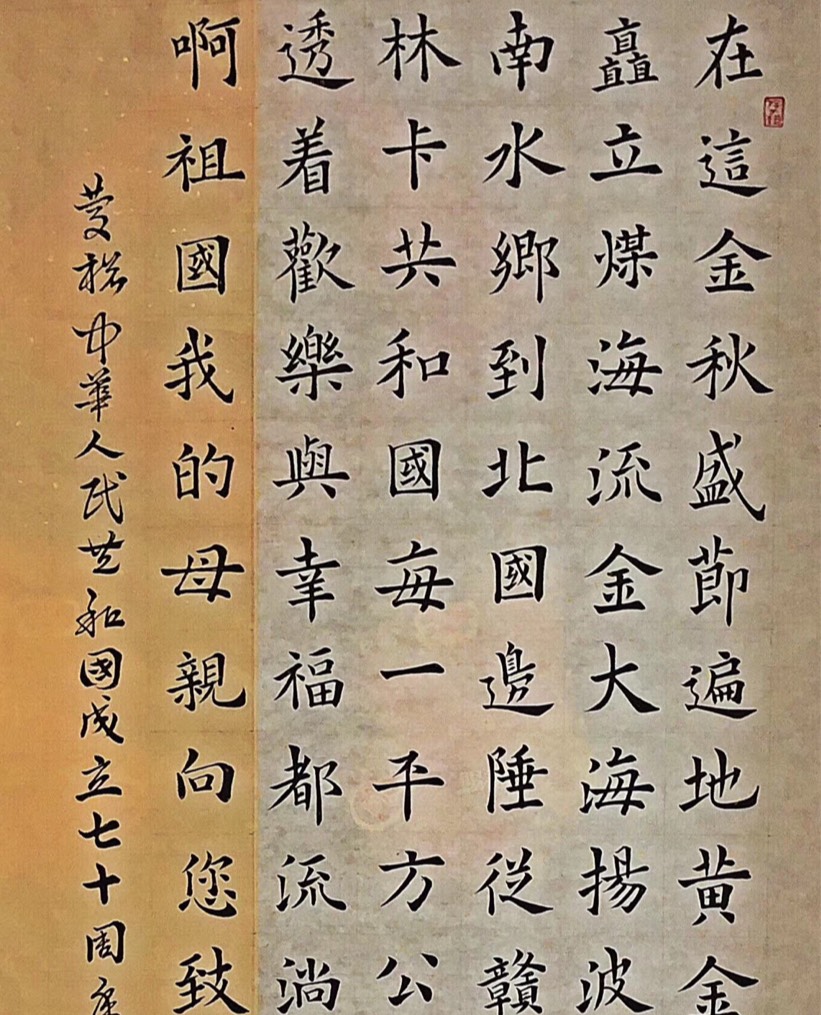 在這金秋盛節遍地黃金
矗立煤海流金大海揚波
南水鄉到北國邊陲從贛
林卡共和國每一平方公
透着歡樂與幸福都流淌
啊祖國我的母親向您致
慶祝中華人民共和國成立七十周